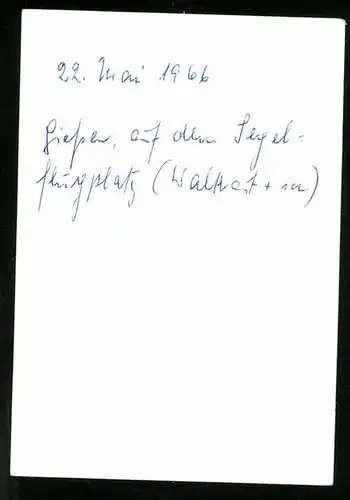 22. Mai 1966
Gießen, auf dem Segel-
flugplatz (Waltraut + ich)